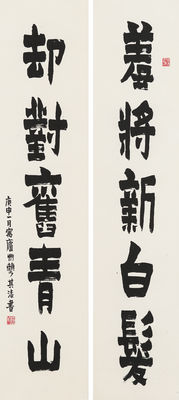 羞將新白髮
却對舊青山
庚申一月